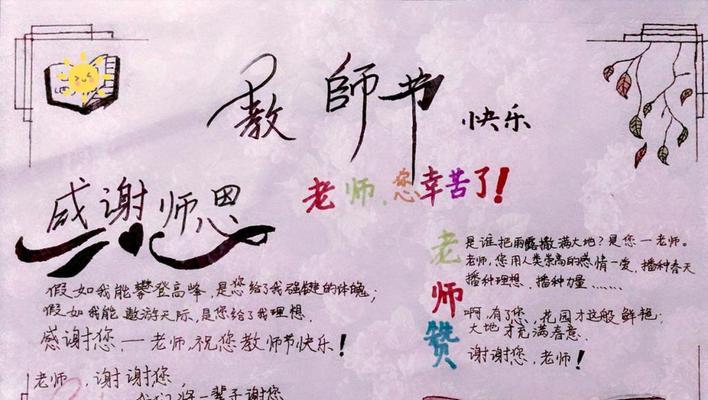 教師节
快乐
老师,您幸苦了!
感谢师恩
假如我能攀登高峰,是您给了我强健的体魄;
假如我能遨游天际,是您给了我理想.
感谢您,一老师,祝您教师节快乐!
老师,谢谢您,
我们将一辈子谢您
老师赞
是谁把雨露撒满大地?是您一老师。
老师,您用人类崇高的感情一爱,播种春天
播种理想、播种力量……
啊,有了您,花园才这般鲜艳;
大地才充满春意.
谢谢您,老师!